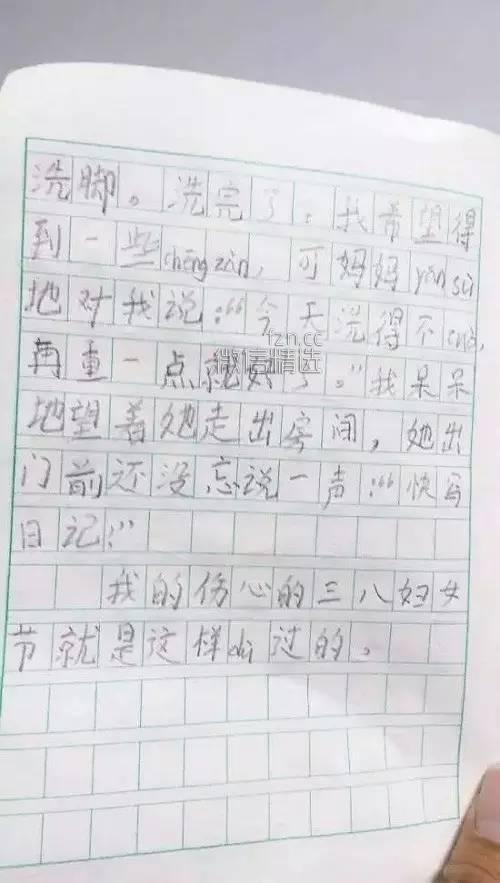 洗脚。洗完了，我希望得
到一些chēng zàn，可妈妈yán sù
地对我说：“今天洗得不cuò，
再重一点就好了。”我呆呆
地望着她走出房间，她出
门前还没忘说一声：“快写
日记！”
我的伤心的三八妇女
节就是这样dù过的。
fzn.cc
微信精选